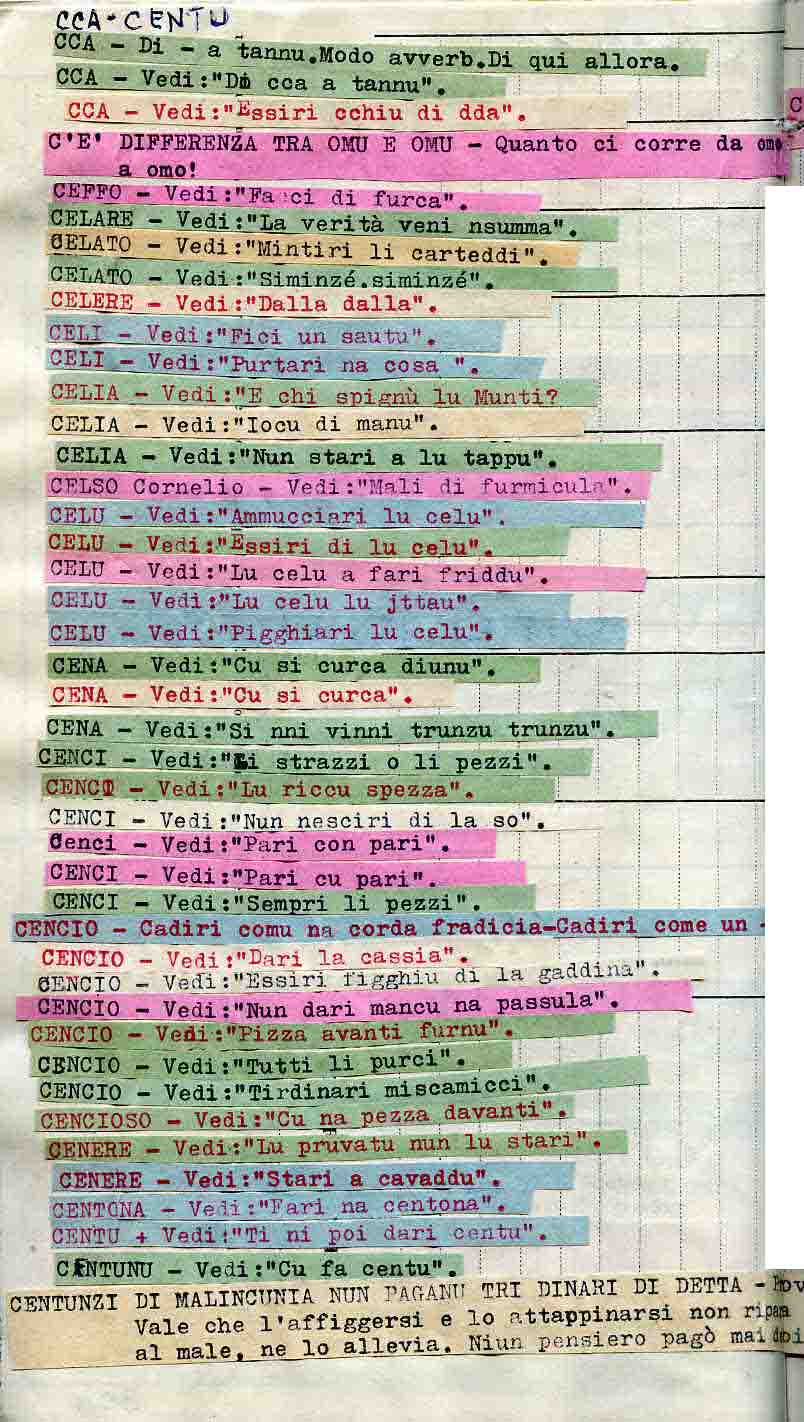 CCA-CENTU
CCA - Di - a tannu.Modo avverb.Di qui allora.
CCA - Vedi:"Di cca a tannu".
CCA - Vedi:"Essiri cchiu di dda".
C'E' DIFFERENZA TRA OMU E OMU - Quanto ci corre da omo
a omo!
CEFFO - Vedi:"Facci di furca".
CELARE - Vedi:"La verità veni nsumma".
CELATO - Vedi:"Mintiri li carteddi".
CELATO - Vedi:"Siminzé.siminzé".
CELERE - Vedi:"Dalla dalla".
CELI - Vedi:"Fici un sautu".
CELI - Vedi:"Purtari na cosa ".
CELIA - Vedi:"E chi spignù lu Munti?
CELIA - Vedi:"Iocu di manu".
CELIA - Vedi:"Nun stari a lu tappu".
CELSO Cornelio - Vedi:"Mali di furmicula".
CELU - Vedi:"Ammucciari lu celu".
CELU - Vedi:"Essiri di lu celu".
CELU - Vedi:"Lu celu a fari friddu".
CELU - Vedi:"Lu celu lu jttau".
CELU - Vedi:"Pigghiari lu celu".
CENA - Vedi:"Cu si curca diunu".
CENA - Vedi:"Cu si curca".
CENA - Vedi:"Si nni vinni trunzu trunzu".
CENCI - Vedi:"Li strazzi o li pezzi".
CENCI - Vedi:"Lu riccu spezza".
CENCI - Vedi:"Nun nesciri di la so".
Cenci - Vedi:"Pari con pari".
CENCI - Vedi:"Pari cu pari".
CENCI - Vedi:"Sempri li pezzi".
CENCIO - Cadiri comu na corda fradicia-Cadiri come un
CENCIO - Vedi:"Dari la cassia".
CENCIO - Vedi:"Essiri figghiu di la gaddina".
CENCIO - Vedi:"Nun dari mancu na passula".
CENCIO - Vedi:"Pizza avanti furnu".
CENCIO - Vedi:"Tutti li purci".
CENCIO - Vedi:"Tirdinari miscamicci".
CENCIOSO - Vedi:"Cu na pezza davanti".
CENERE - Vedi:"Lu pruvatu nun lu stari".
CENERE - Vedi:"Stari a cavaddu".
CENTONA - Vedi:"Fari na centona".
CENTU + Vedi:"Ti ni poi dari centu".
CENTUNU - Vedi:"Cu fa centu".
CENTUNZI DI MALINCUNIA NUN PAGANU TRI DINARI DI DETTA -
Vale che l'affiggersi e lo attappinarsi non ripara
al male, ne lo allevia. Niun pensiero pagò mai